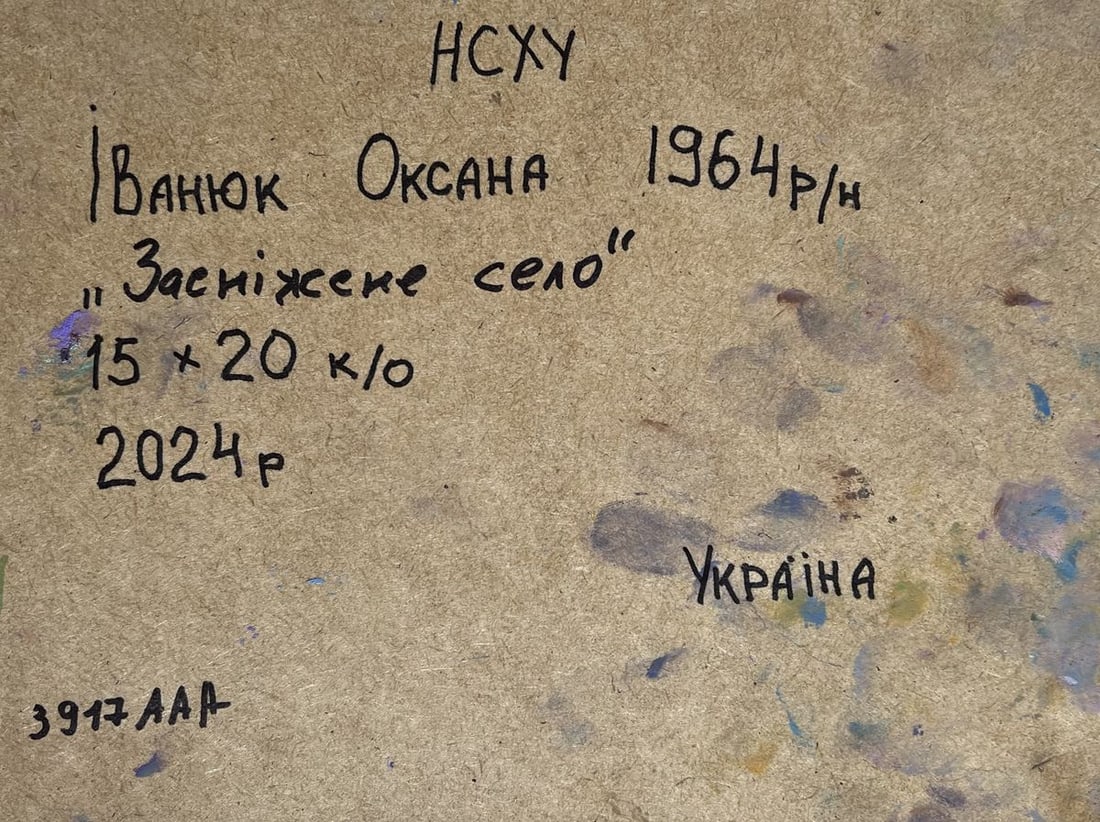 НСХУ
Іванюк Оксана 1964 р/н
„Засніжене село“
15 × 20 к/о
2024 р
Україна
3917 ААА